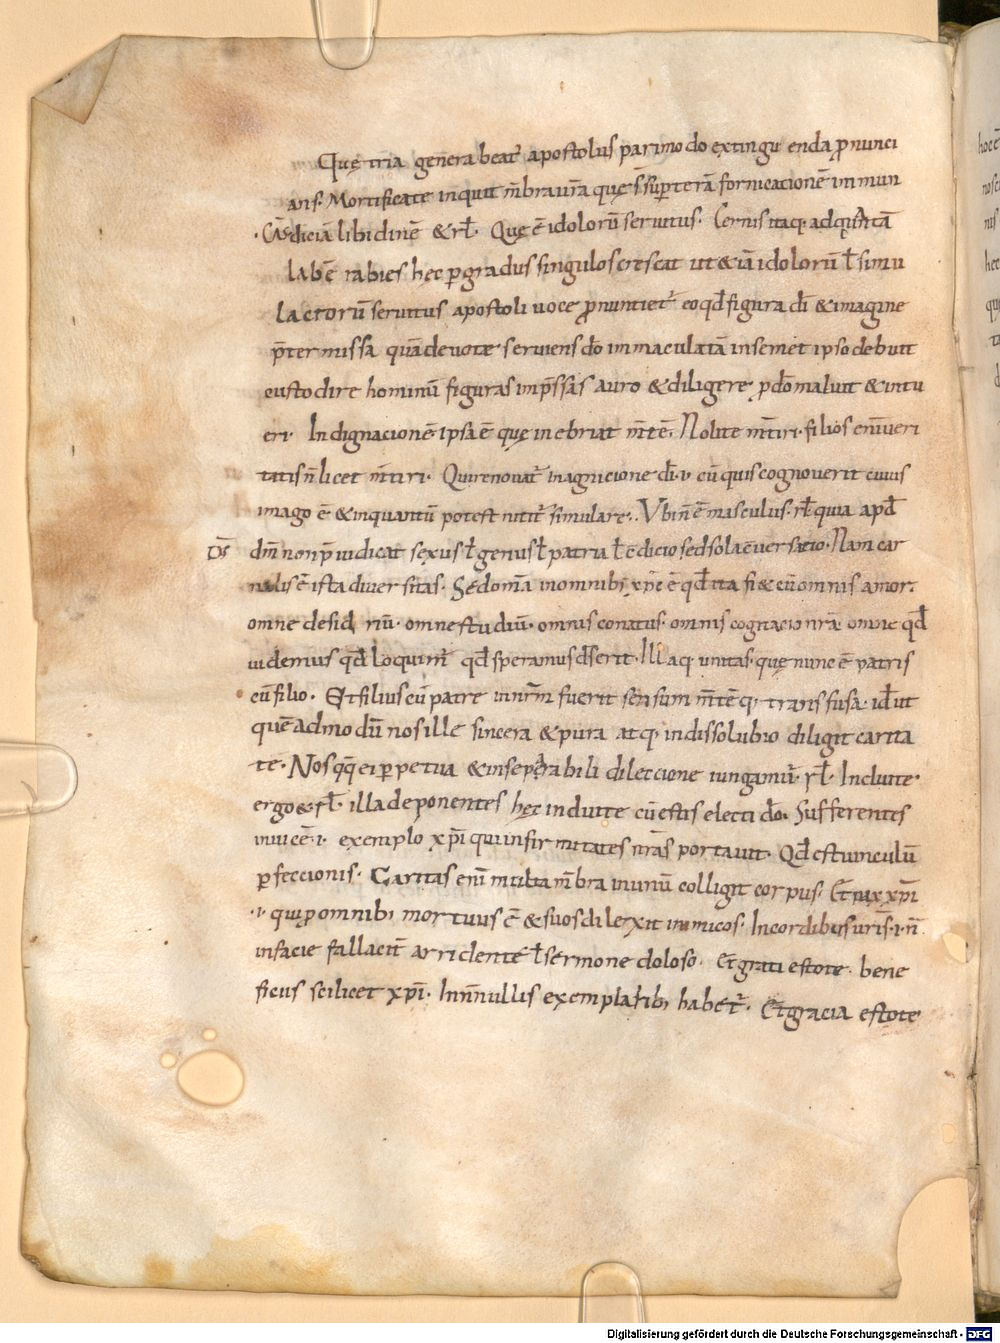 Quę tria genera beat᷒ apostolus pari modo extinguenda ꝓnunci
ans. Mortificate inquit m̅bra ur̅a que s̅ sup̅ terā fornicationē inmun
diciā libidinē & rl̅. Quę ē idolorū seruitus. Cernis itaq. ad quantā
labē rabies hec ꝑ gradus singulos crescat ut & iā idolorū l̅ simu
lacrorū seruitus apostoli uoce ꝓnuntiet᷒ eo qd̅ figura di̅ & imagine
p̅termissa quā deuote seruiens do̅ inmaculatā in semet ipso debuit
custodire hominū figuras imp̅ssas auro & diligere p do̅ maluit & intu
eri. Indignacionē ipsa ē que inebriat m̅tē. Nolite m̅tiri. filios eni̅ ueri
tatis n̅ licet m̅tiri. Qui renouat᷒ in agnicione di̅ .i. cū quis cognouerit cuius
imago ē. & in quantū potest nitit᷒ simulare. Vbi n̅ ē masculus. rl̅ quia apd̅
dm̅ non p̅iudicat sexus l̅ genus l̅ patria l̅ ēdicio sed sola ēuersatio. Nam car
nalis ē ista diuersitas. Sed om̅a in omnibi xp̅c ē qd̅ ita fi& cū omnis amor.
omne desid riū. omne studiū. omnis conatus. omnis cognacio nr̅a omne qd̅
uidemus qd̅ loquim᷒ qd̅ speramus ds̅ erit. Illaq. unitas. quę nunc ē patris
cū filio. Et filius cū patre in nr̅m fuerit sensum m̅tēq. transfusa. id̅ ut
quēadmodū nos ille sincera & pura atq. indissolubio diligit carita
te. Nos qq̅ ei ꝑpetua & insepabili dileccione iungamur. rl̅. Induite
ergo & rl̅. illa deponentes hęc induite cū estis electi do̅. Sufferentes
inuicē .i. exemplo xp̅i qui infirmitates nr̅as portauit. Qd̅ est uinculū
ꝑfeccionis. Caritas eni̅ multa m̅bra in unū colligit corpus. Et pax xp̅i
.i. qui p omnibi mortuus ē & suos dilexit inimicos. In cordibus uris̅ .i. n̅
in facie fallacit᷒ arridente l̅ sermone doloso. Et grati estote. bene
ficus scilicet xp̅i. In n̅nullis exemplaribi habet᷒. Et gracia estote